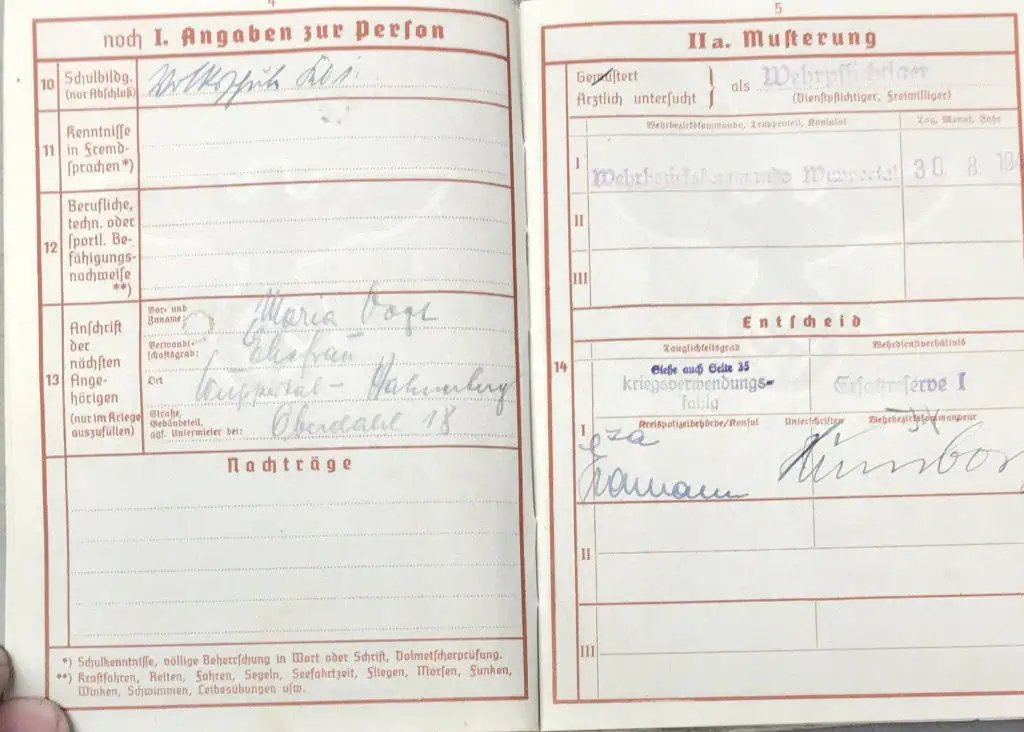 4
noch I. Angaben zur Person
10 Schulbildg. (nur Abschluß)
Volksschule
11 Kenntnisse in Fremd-
sprachen*)
12 Berufliche,
techn. oder
sportl. Be-
fähigungs-
nachweise
**)
13 Anschrift
der
nächsten
Ange-
hörigen
(nur im Kriege
auszufüllen)
Vor- und
Zuname:
Maria Vogt
Verwandt-
schaftsgrad:
Ehefrau
Ort
Wuppertal - Hahnerberg
Straße,
Gebäudeteil,
ggf. Untermieter bei:
Oberdahl 18
Nachträge
*) Schulkenntnisse, völlige Beherrschung in Wort oder Schrift, Dolmetscherprüfung.
**) Kraftfahren, Reiten, Fahren, Segeln, Seefahrtzeit, Fliegen, Morsen, Funken,
Winken, Schwimmen, Leibesübungen usw.
5
IIa. Musterung
Gemustert
Ärztlich untersucht
als Wehrpflichtiger
(Dienstpflichtiger, Freiwilliger)
Wehrbezirkskommando, Truppenteil, Konsulat
Tag, Monat, Jahr
I
Wehrbezirkskommando Wuppertal
30 8. 194
II
III
Entscheid
14
Tauglichkeitsgrad
Wehrdienstverhältnis
Siehe auch Seite 35
kriegsverwendungs-
fähig
Ersatzreserve I
I
Kreispolizeibehörde/Konsul
Unterschriften
Wehrbezirkskommandeur
gza
II
III